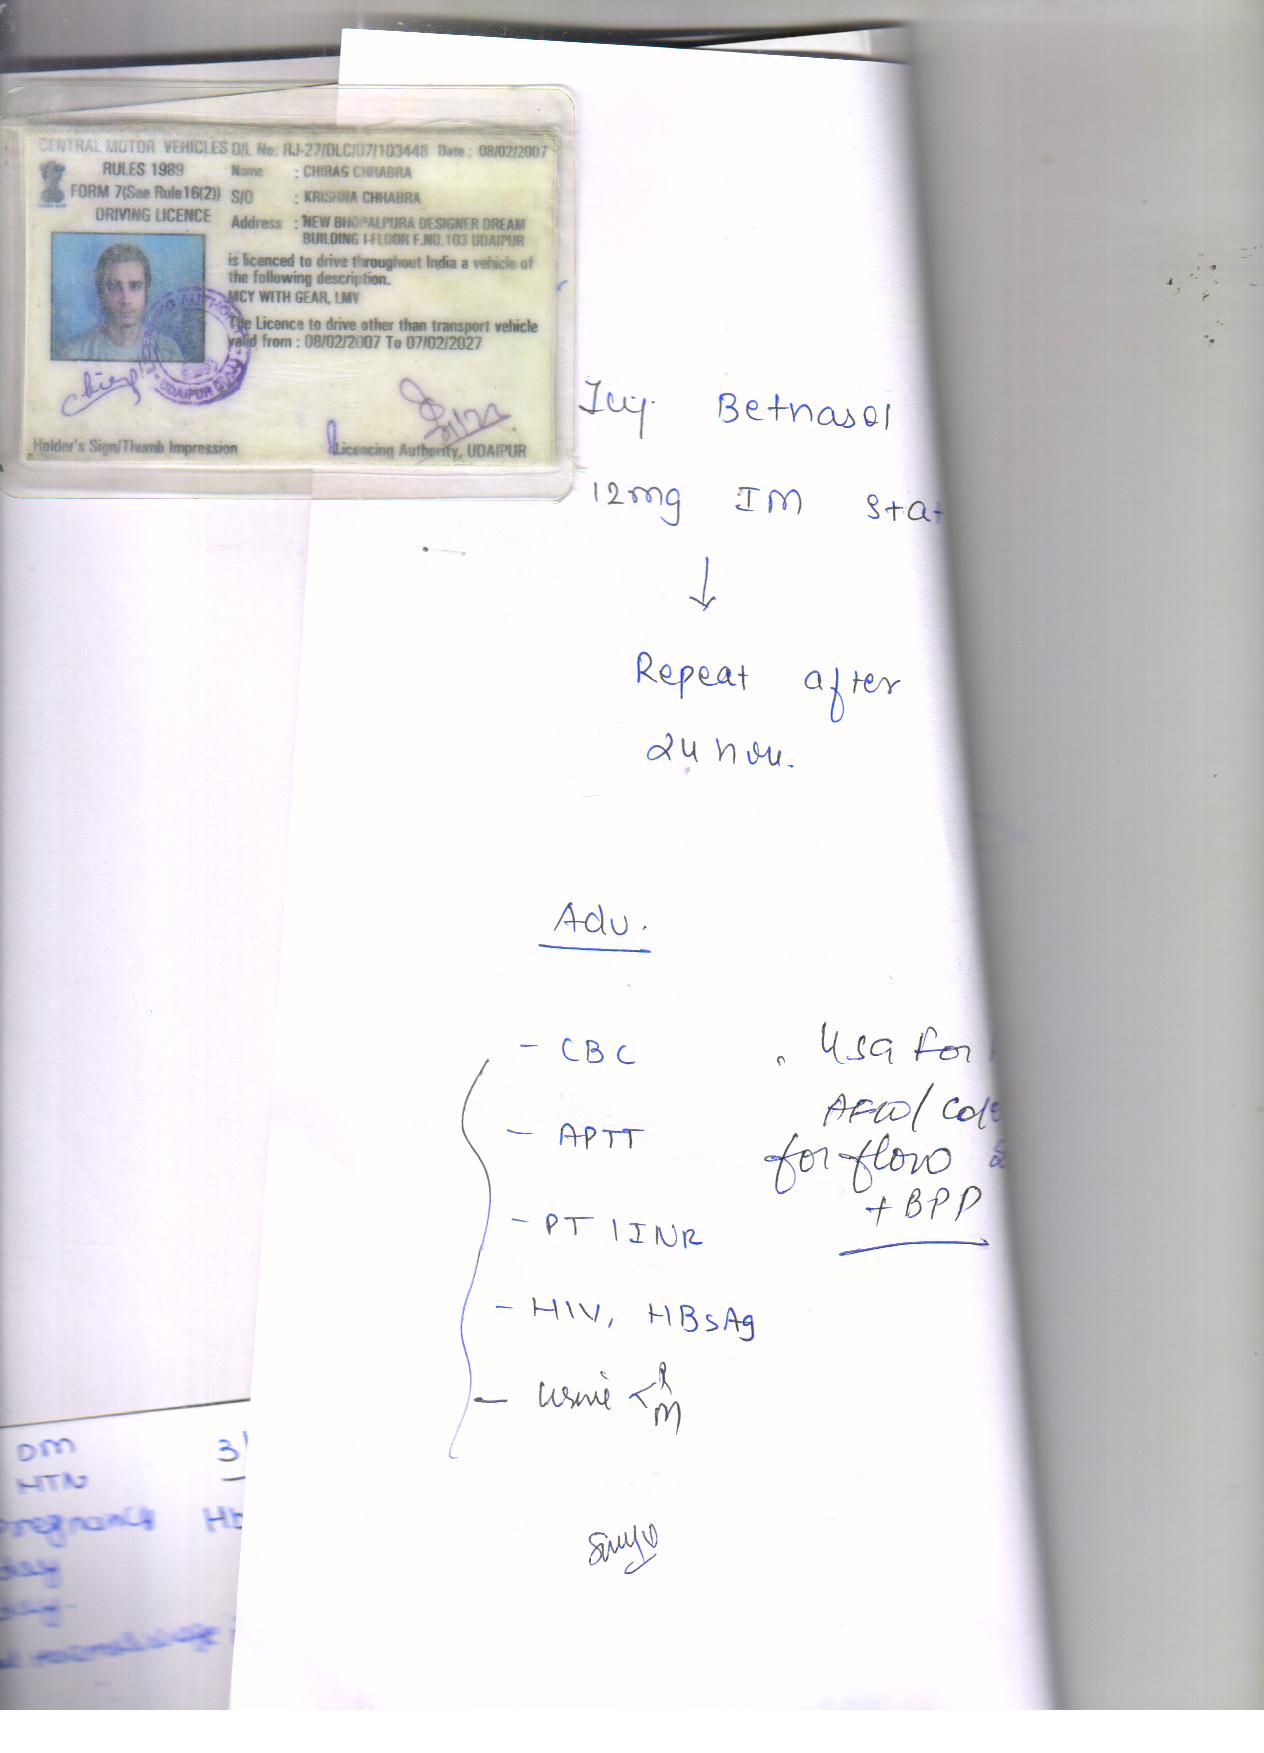 CENTRAL MOTOR VEHICLES D/L No: RJ-27/DLC/07/103448 Date : 08/02/2007
RULES 1989 Name : CHIRAG CHHABRA
FORM 7(See Rule16(2)) S/O : KRISHNA CHHABRA
DRIVING LICENCE Address : NEW BHOPALPURA DESIGNER DREAM
BUILDING I-FLOOR F.NO.103 UDAIPUR
is licenced to drive throughout India a vehicle of
the following description.
MCY WITH GEAR, LMV
The Licence to drive other than transport vehicle
valid from : 08/02/2007 To 07/02/2027
UDAIPUR
Holder's Sign/Thumb Impression
Licencing Authority, UDAIPUR
Inj. Betnasol
12mg IM stat
Repeat after
24 hou.
Adv.
- CBC
- APTT
- PT / INR
- HIV, HBsAg
- Urine < R
M
USG for
for flow
+ BPP
DM 3
HTN
pregnancy Hb
day